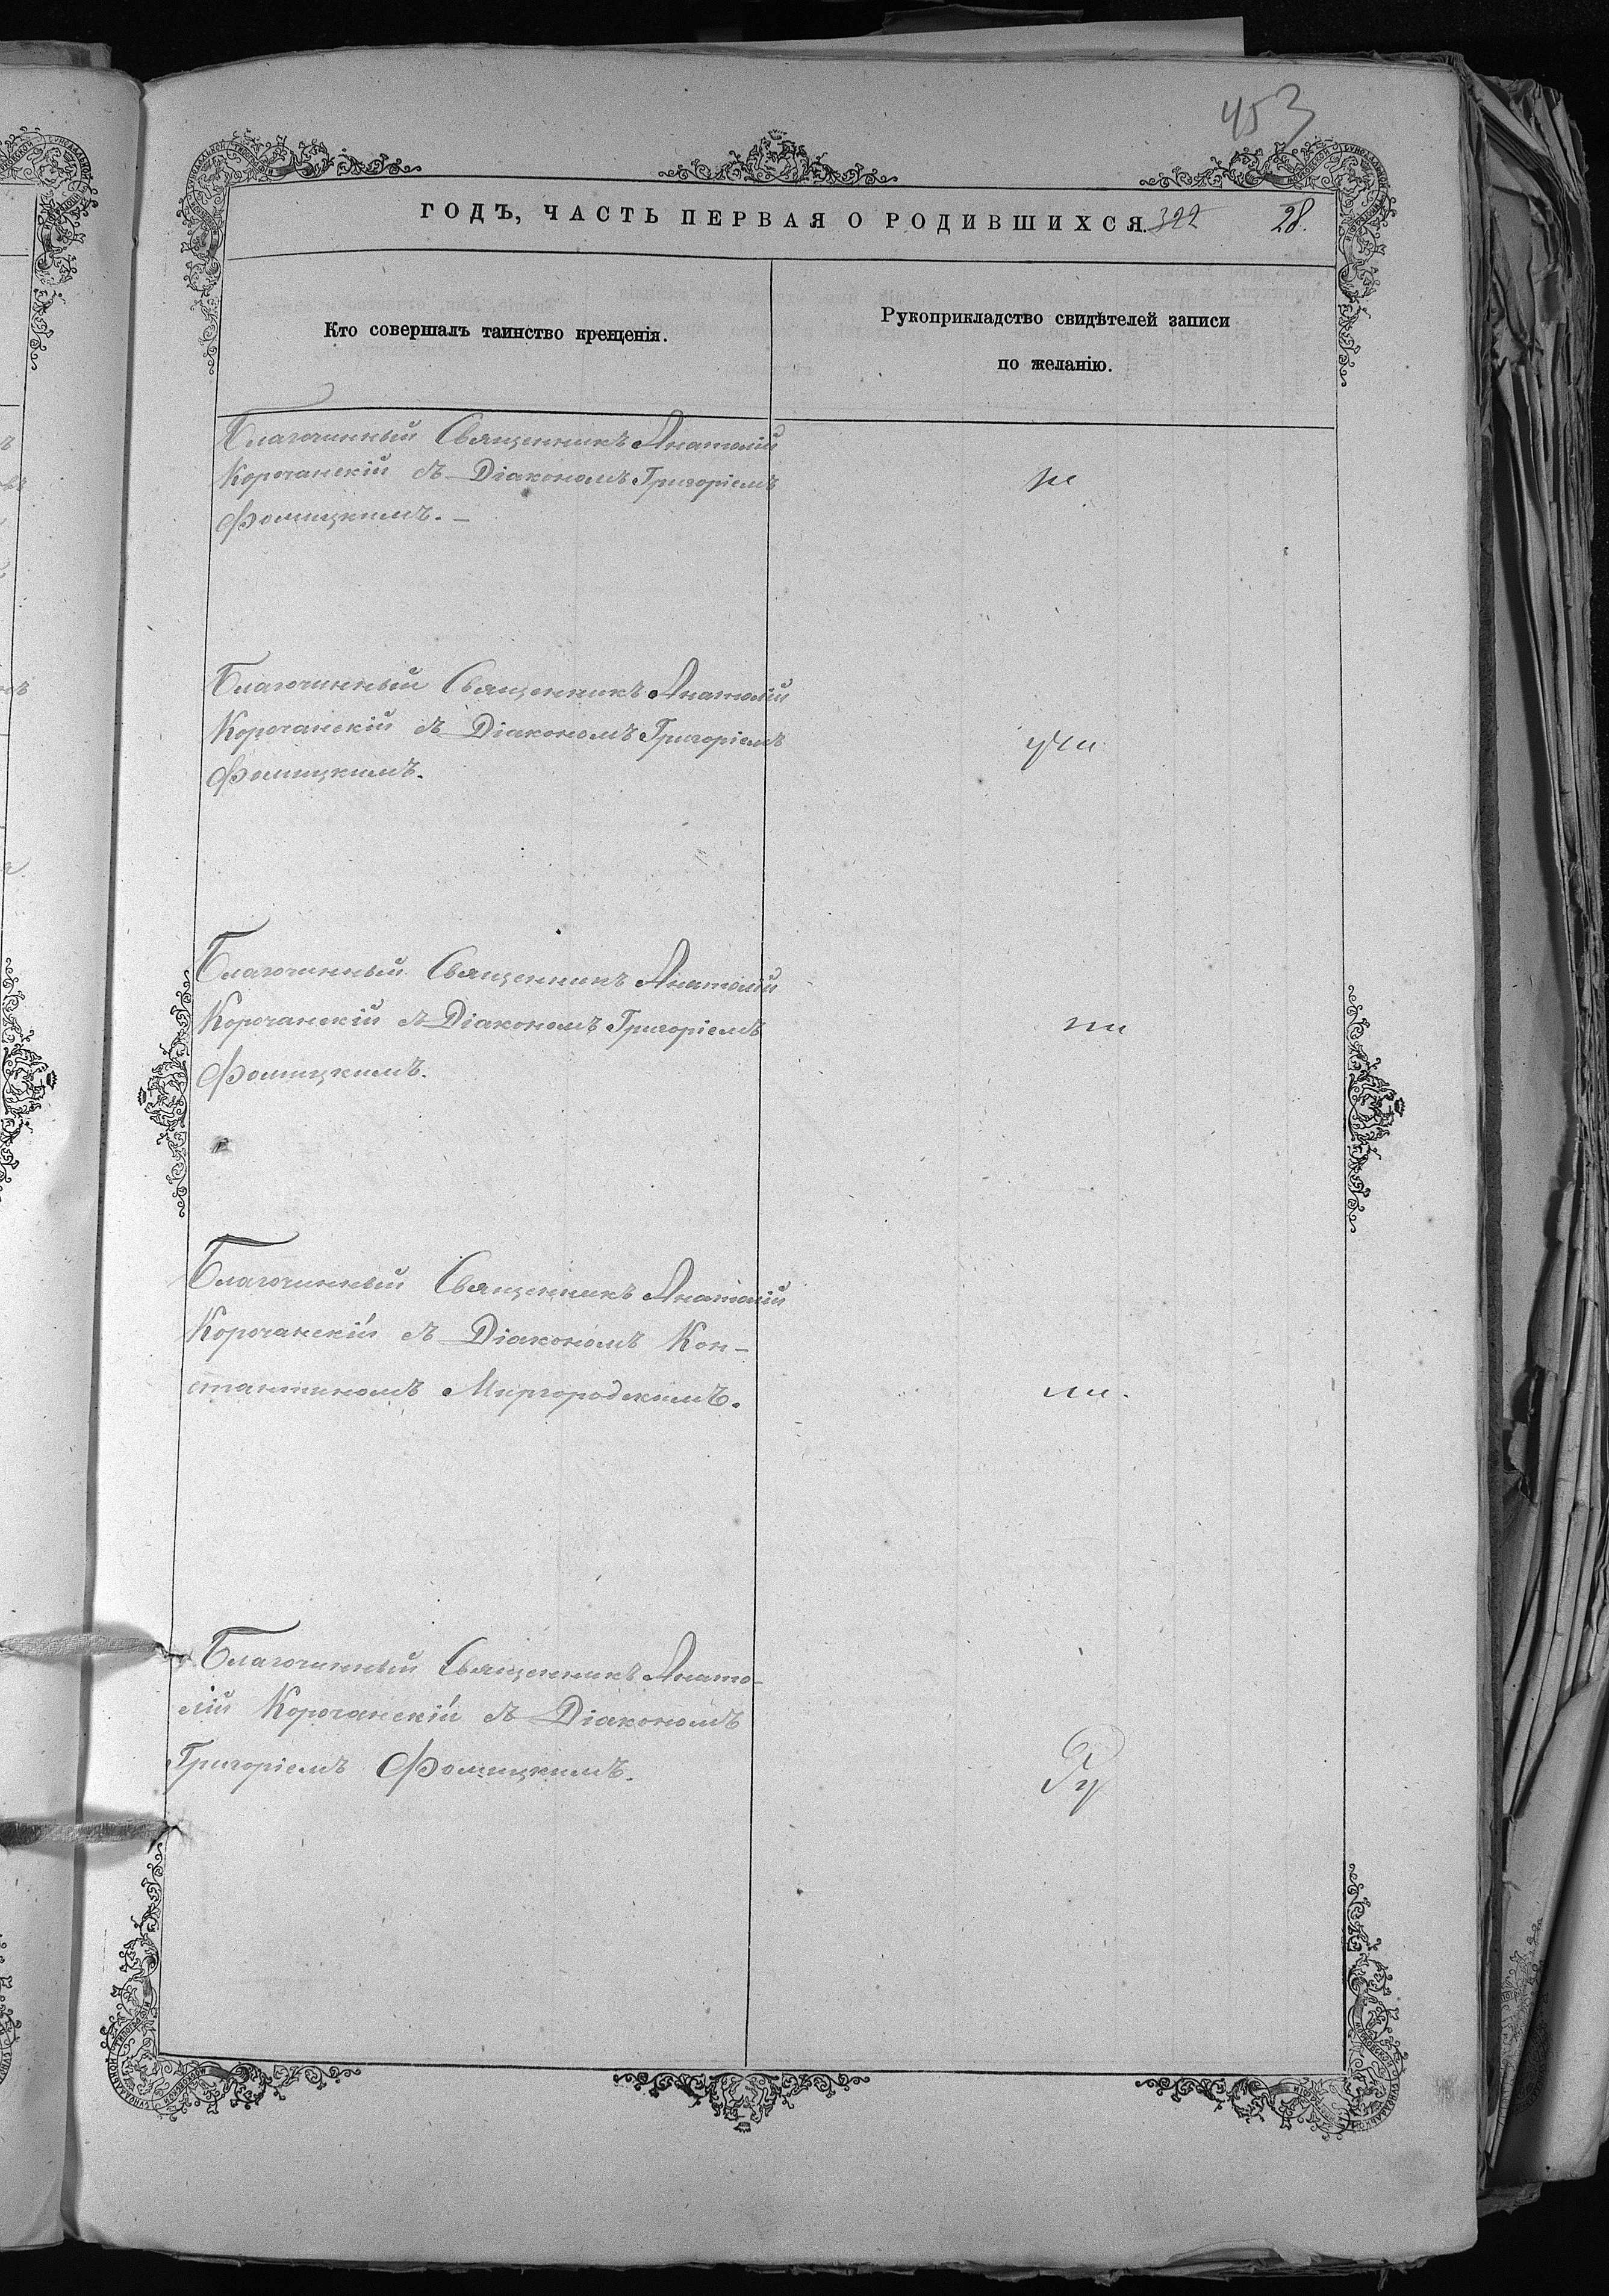 453
ГОДЪ, ЧАСТЬ ПЕРВАЯ О РОДИВШИХСЯ. 322 28.
Кто совершалъ таинство крещенія.
Рукоприкладство свидѣтелей записи
по желанію.
Благочинный Священникъ Анатолій
Корочанскій съ Діакономъ Григоріемъ
Фомицкимъ. –
Благочинный Священникъ Анатолій
Корочанскій съ Діакономъ Григоріемъ
Фомицкимъ.
Благочинный Священникъ Анатолій
Корочанскій съ Діакономъ Григоріемъ
Фомицкимъ.
Благочинный Священникъ Анатолій
Корочанскій съ Діакономъ Кон-
стантиномъ Миргородскимъ.
Благочинный Священникъ Анато-
лій Корочанскій съ Діакономъ
Григоріемъ Фомицкимъ.
Ру